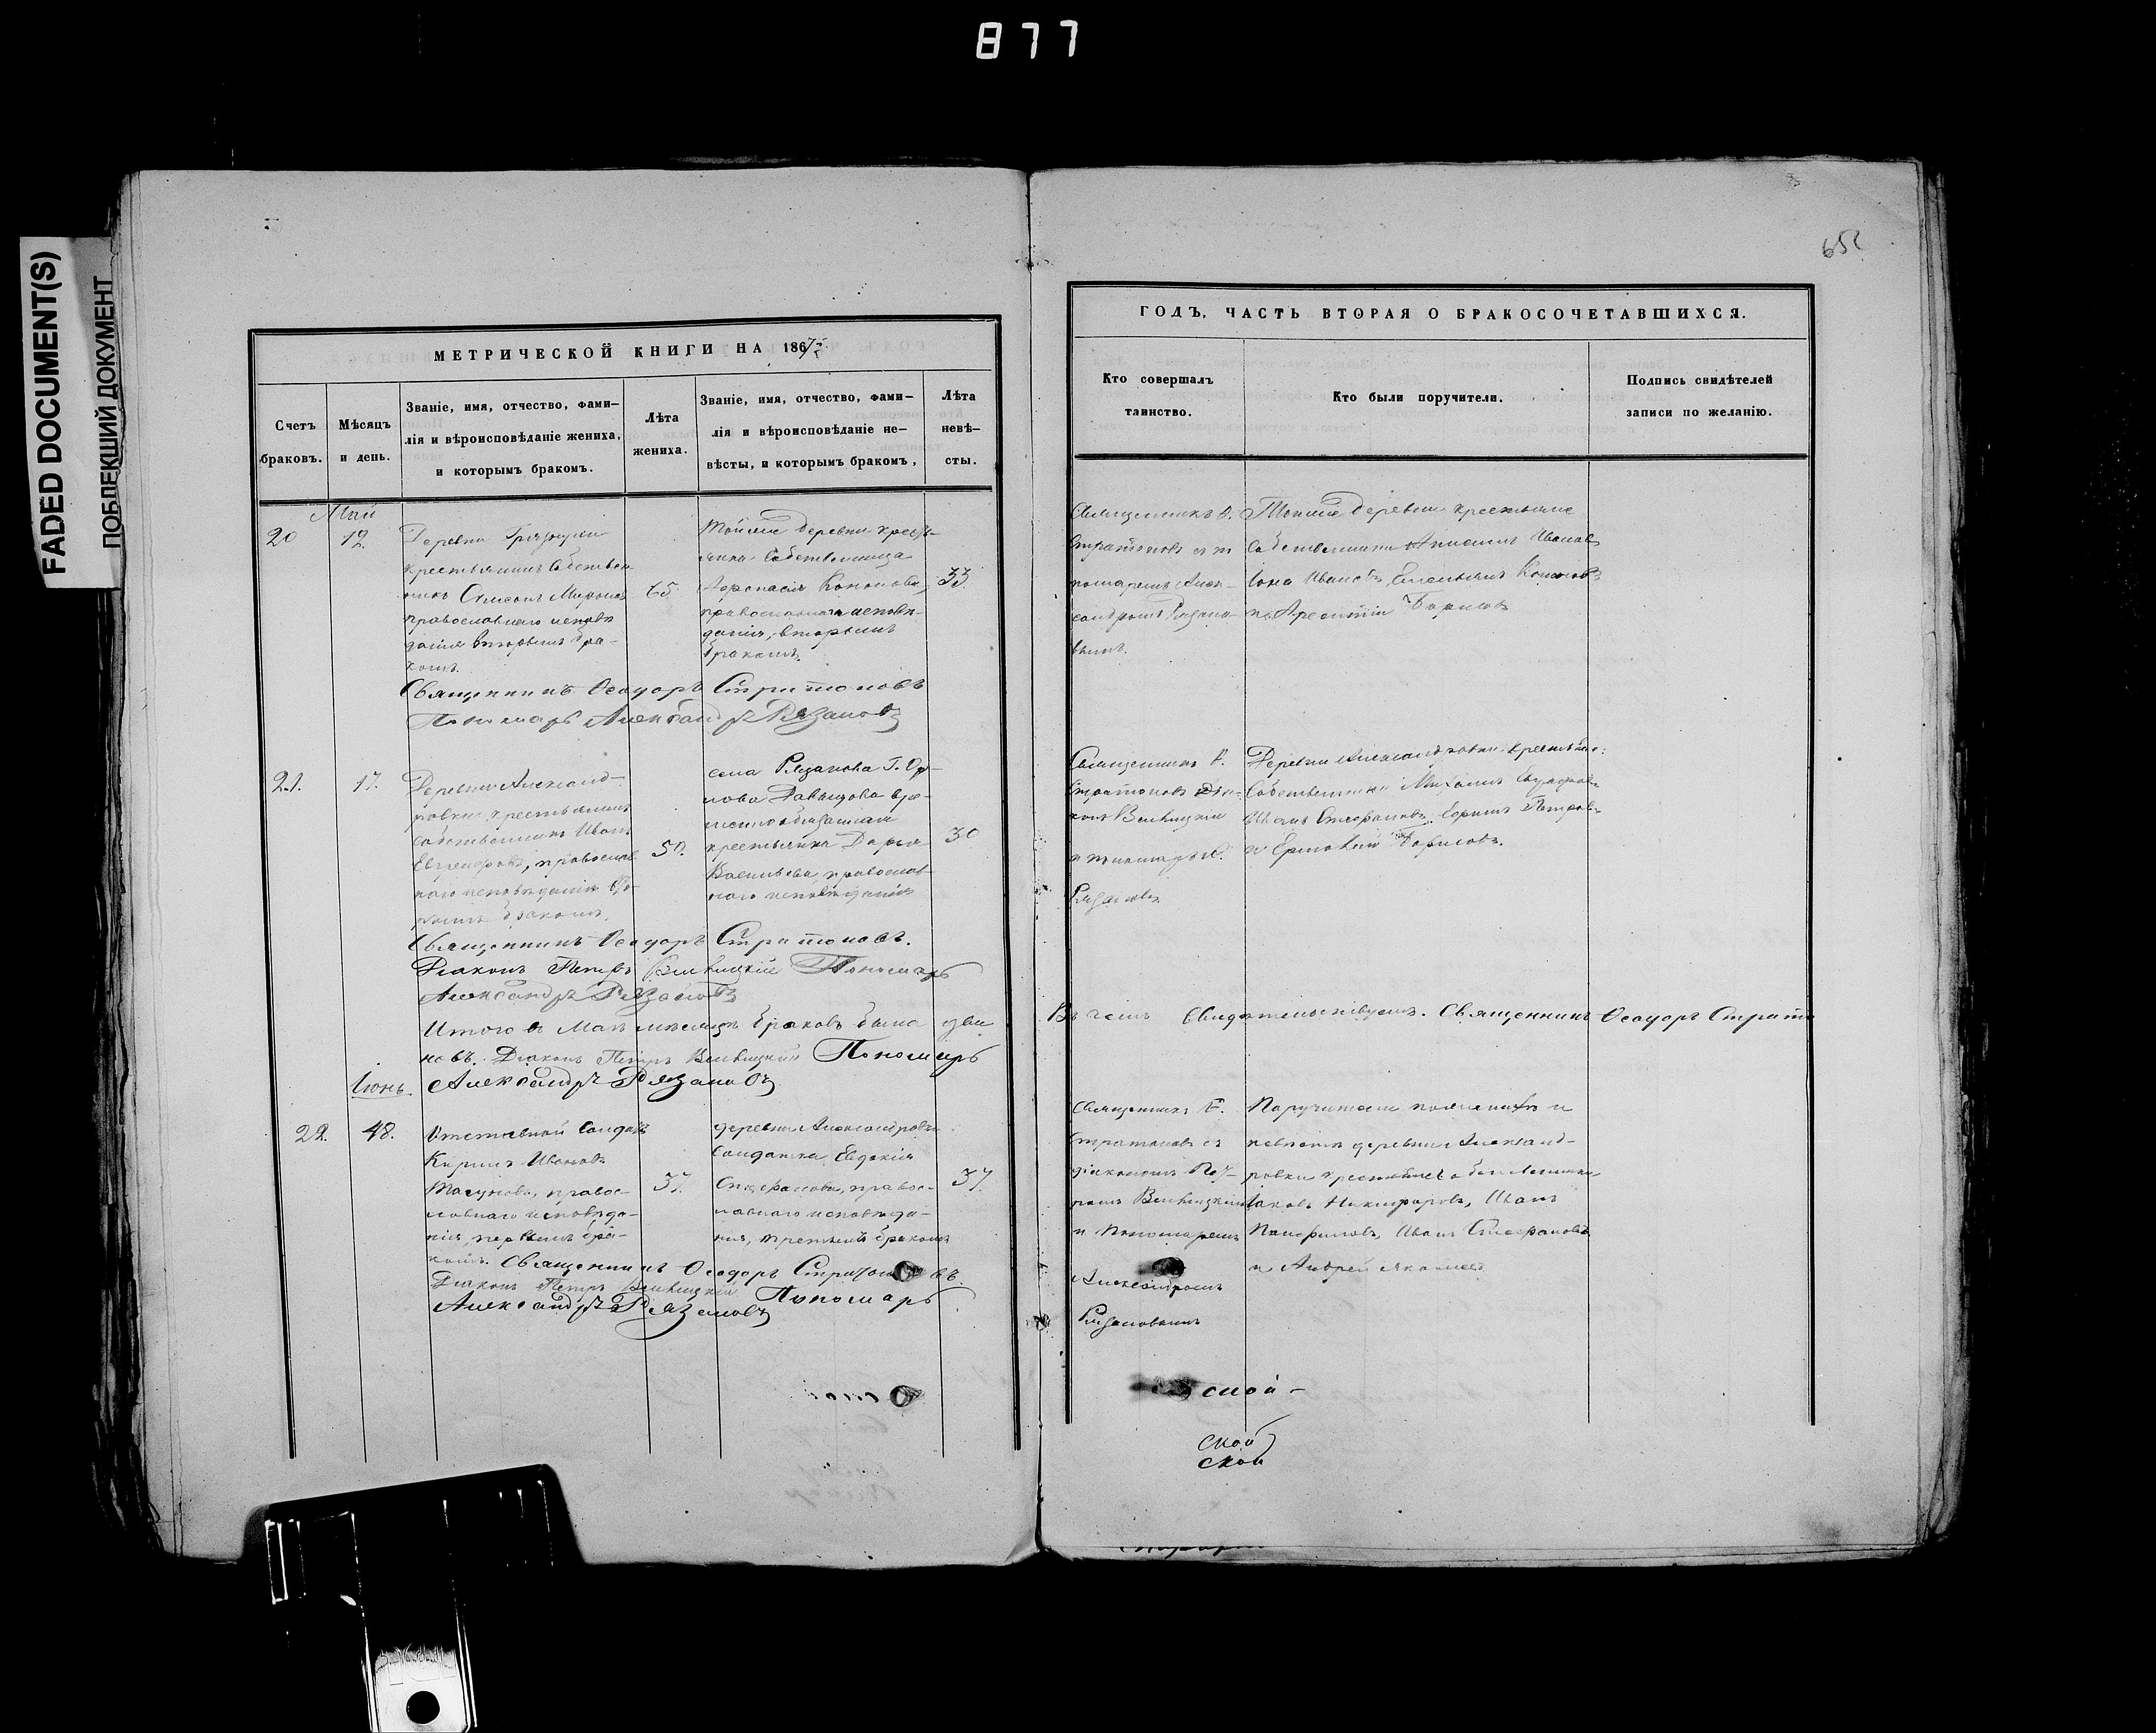 877
FADED DOCUMENT(S)
ПОБЛЕКШИЙ ДОКУМЕНТ
652
МЕТРИЧЕСКОЙ КНИГИ НА 1867
Счетъ браковъ.
Мѣсяцъ и день.
Званіе, имя, отчество, фами-
лія и вѣроисповѣданіе жениха,
и которымъ бракомъ.
Лѣта
жениха.
Званіе, имя, отчество, фами-
лія и вѣроисповѣданіе не-
вѣсты, и которымъ бракомъ,
Лѣта
невѣ-
сты.
Май
20
12.
Деревни
крестьянинъ Собствен
никъ Симеонъ Мироновъ
православнаго исповѣ
данія вторымъ бра-
комъ.
65
Тойже деревни кресть-
янка Собственница
Афанасія Кононова,
православнаго исповѣ-
данія, вторымъ
бракомъ.
33
Священникъ Ѳеодоръ Стратоновъ
Пономарь Александръ Рязановъ
21.
17.
Деревни Александ-
ровки крестьянинъ
собственникъ Иванъ
Евграфовъ, православ
наго исповѣданія вто-
рымъ бракомъ.
50.
села Рязанова Г. Ор-
лова Давыдова вре-
менно обязанная
крестьянка Дарья
Васильева, православ-
наго исповѣданія
30
Священникъ Ѳеодоръ Стратоновъ.
Діаконъ Петръ Пономарь
Александръ Рязановъ
Итого въ Маѣ мѣсяцѣ браковъ было два
новъ. Діаконъ Петръ Пономарь
Іюнь. Александръ Рязановъ
22.
48.
Отставной Солдатъ
Кирилъ Ивановъ
правос-
лавнаго исповѣда-
нія, первымъ бра-
комъ.
37.
деревни Александровки
Солдатка Евдокія
Стефанова, правос-
лавнаго исповѣда-
нія, третьимъ бракомъ
37.
Священникъ Ѳеодоръ Стратоновъ.
Діаконъ Петръ
Александръ Рязановъ Пономарь
ГОДЪ, ЧАСТЬ ВТОРАЯ О БРАКОСОЧЕТАВШИХСЯ.
Кто совершалъ
таинство.
Кто были поручители.
Подпись свидѣтелей
записи по желанію.
Священникъ Ѳ.
Стратоновъ съ п
пономаремъ Алек-
сандромъ Рязано-
вымъ.
Тойже деревни крестьяне
Собственники Ивановъ
Іона Ивановъ, Емельянъ Кононовъ
и Борисовъ
Священникъ Ѳ.
Стратоновъ Діа-
конъ
и пономарь А.
Рязановъ
Деревни Александровки крестьяне
Собственники Михаилъ Евграфовъ
Стефановъ, Ефимъ Петровъ
и Ермолай Борисовъ.
Въ чемъ свидѣтельствуемъ. Священникъ Ѳеодоръ Страто
Священникъ Ѳ.
Стратоновъ съ
діакономъ Пет-
ромъ
и Пономаремъ
Александромъ
Рязановымъ
Поручители по женихѣ и
невѣстѣ деревни Александ-
ровки крестьяне собственники
Іаковъ Никифоровъ, Иванъ
Панфиловъ, Иванъ Стефановъ
и Андрей
ской-
ской
ской